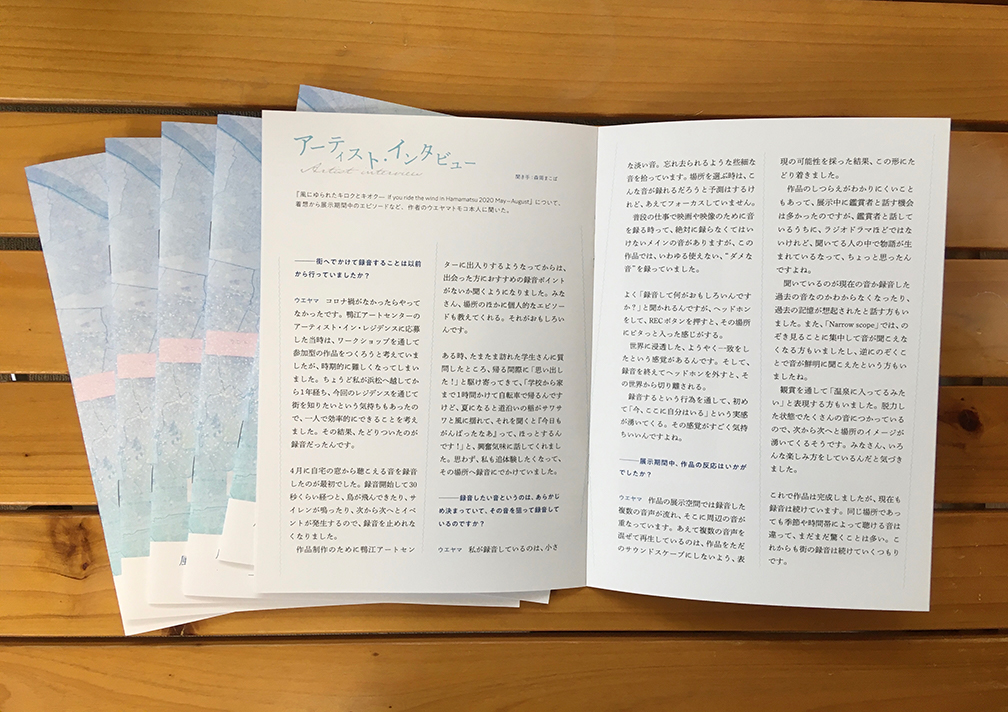 アーティスト・インタビュー
Artist interview
聞き手|森岡まこぱ
『風にゆられたキロクとキオク— if you ride the wind in Hamamatsu 2020 May—August』について、
着想から展示期間中のエピソードなど、作者のウエヤマトモコ本人に聞いた。
——街へでかけて録音することは以前
から行っていましたか?
ウエヤマ コロナ禍がなかったらやって
なかったです。鴨江アートセンターの
アーティスト・イン・レジデンスに応募
した当時は、ワークショップを通して
参加型の作品をつくろうと考えていま
したが、時期的に難しくなってしまい
ました。ちょうど私が浜松へ越してか
ら1年経ち、今回のレジデンスを通じて
街を知りたいという気持ちもあったの
で、一人で効率的にできることを考え
ました。その結果、たどりついたのが
録音だったんです。
4月に自宅の窓から聴こえる音を録音
したのが最初でした。録音開始して30
秒くらい経つと、鳥が飛んできたり、サ
イレンが鳴ったり、次から次へとイベ
ントが発生するので、録音を止めれな
くなりました。
作品制作のために鴨江アートセン
ターに出入りするようなってからは、
出会った方におすすめの録音ポイント
がないか聞くようになりました。みな
さん、場所のほかに個人的なエピソー
ドも教えてくれる。それがおもしろい
んです。
ある時、たまたま訪れた学生さんに質
問したところ、帰る間際に「思い出し
た!」と駆け寄ってきて、「学校から家
まで1時間かけて自転車で帰るんです
けど、夏になると道沿いの稲がサワサ
ワと風に揺れて、それを聞くと『今日も
がんばったなあ』って、ほっとするんで
す!」と、興奮気味に話してくれまし
た。思わず、私も追体験したくなって、
その場所へ録音にでかけていました。
——録音したい音というのは、あらかじ
め決まっていて、その音を狙って録音して
いるのですか?
ウエヤマ 私が録音しているのは、小さ
な淡い音。忘れ去られるような些細な
音を拾っています。場所を選ぶ時は、こ
んな音が録れるだろうと予測はするけ
れど、あえてフォーカスしていません。
普段の仕事で映画や映像のために音
を録る時って、絶対に録らなくてはい
けないメインの音がありますが、この
作品では、いわゆる使えない、“ダメな
音”を録っていました。
よく「録音して何がおもしろいんです
か?」と聞かれるんですが、ヘッドホン
をして、RECボタンを押すと、その場所
にピタッと入った感じがする。
世界に浸透した、ようやく一致をし
たという感覚があるんです。そして、
録音を終えてヘッドホンを外すと、そ
の世界から切り離される。
録音するという行為を通して、初め
て「今、ここに自分はいる」という実感
が湧いてくる。その感覚がすごく気持
ちいいんですよね。
——展示期間中、作品の反応はいかが
でしたか?
ウエヤマ 作品の展示空間では録音した
複数の音声が流れ、そこに周辺の音が
重なっています。あえて複数の音声を
混ぜて再生しているのは、作品をただ
のサウンドスケープにしないよう、表
現の可能性を採った結果、この形にた
どり着きました。
作品のしつらえがわかりにくいこと
もあって、展示中に鑑賞者と話す機会
は多かったのですが、鑑賞者と話して
いるうちに、ラジオドラマほどではな
いけれど、聞いてる人の中で物語が生
まれているなって、ちょっと思ったん
ですよね。
聞いているのが現在の音か録音した
過去の音なのかわからなくなったり、
過去の記憶が想起されたと話す方もい
ました。また、「Narrow scope」では、の
ぞき見ることに集中して音が聞こえな
くなる方もいましたし、逆にのぞくこ
とで音が鮮明に聞こえたという方もい
ましたね。
観賞を通して「温泉に入ってるみた
い」と表現する方もいました。脱力し
た状態でたくさんの音につかっている
ので、次から次へと場所のイメージが
湧いてくるそうです。みなさん、いろん
な楽しみ方をしているんだと気づき
ました。
これで作品は完成しましたが、現在も
録音は続けています。同じ場所であっ
ても季節や時間帯によって聴ける音は
違って、まだまだ驚くことは多い。こ
れからも街の録音は続けていくつもり
です。